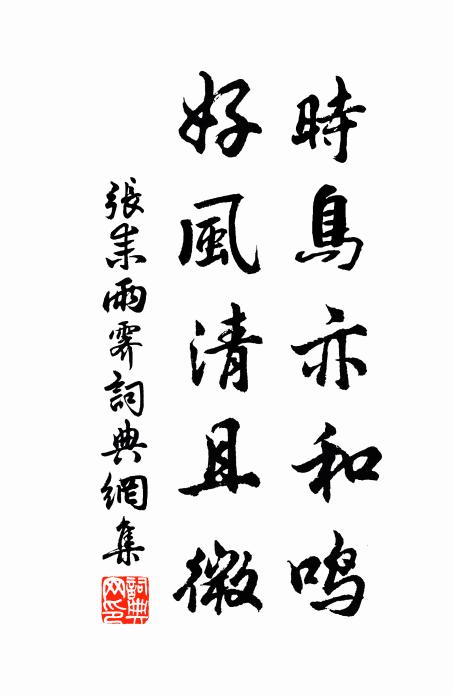 時鳥亦和鳴
好風清且微
張耒雨霽詞典網集
詞典網印